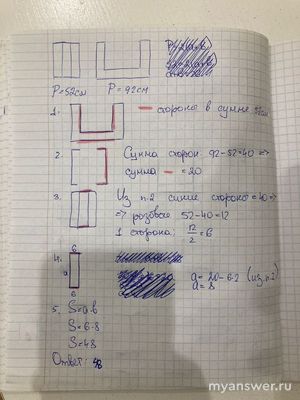 P=52см P=92см
1. стороны в сумме 52см
2. Сумма сторон 92-52=40 =>
сумма = 20
3. Из п.2 синие стороны = 40 =>
=> розовые 52-40=12
1 сторона: 12/2=6
4. 6
a
6
a = 20-6·2 (из п.2)
a = 8
5. S=a·b
S=6·8
S=48
Ответ: 48
myanswer.ru